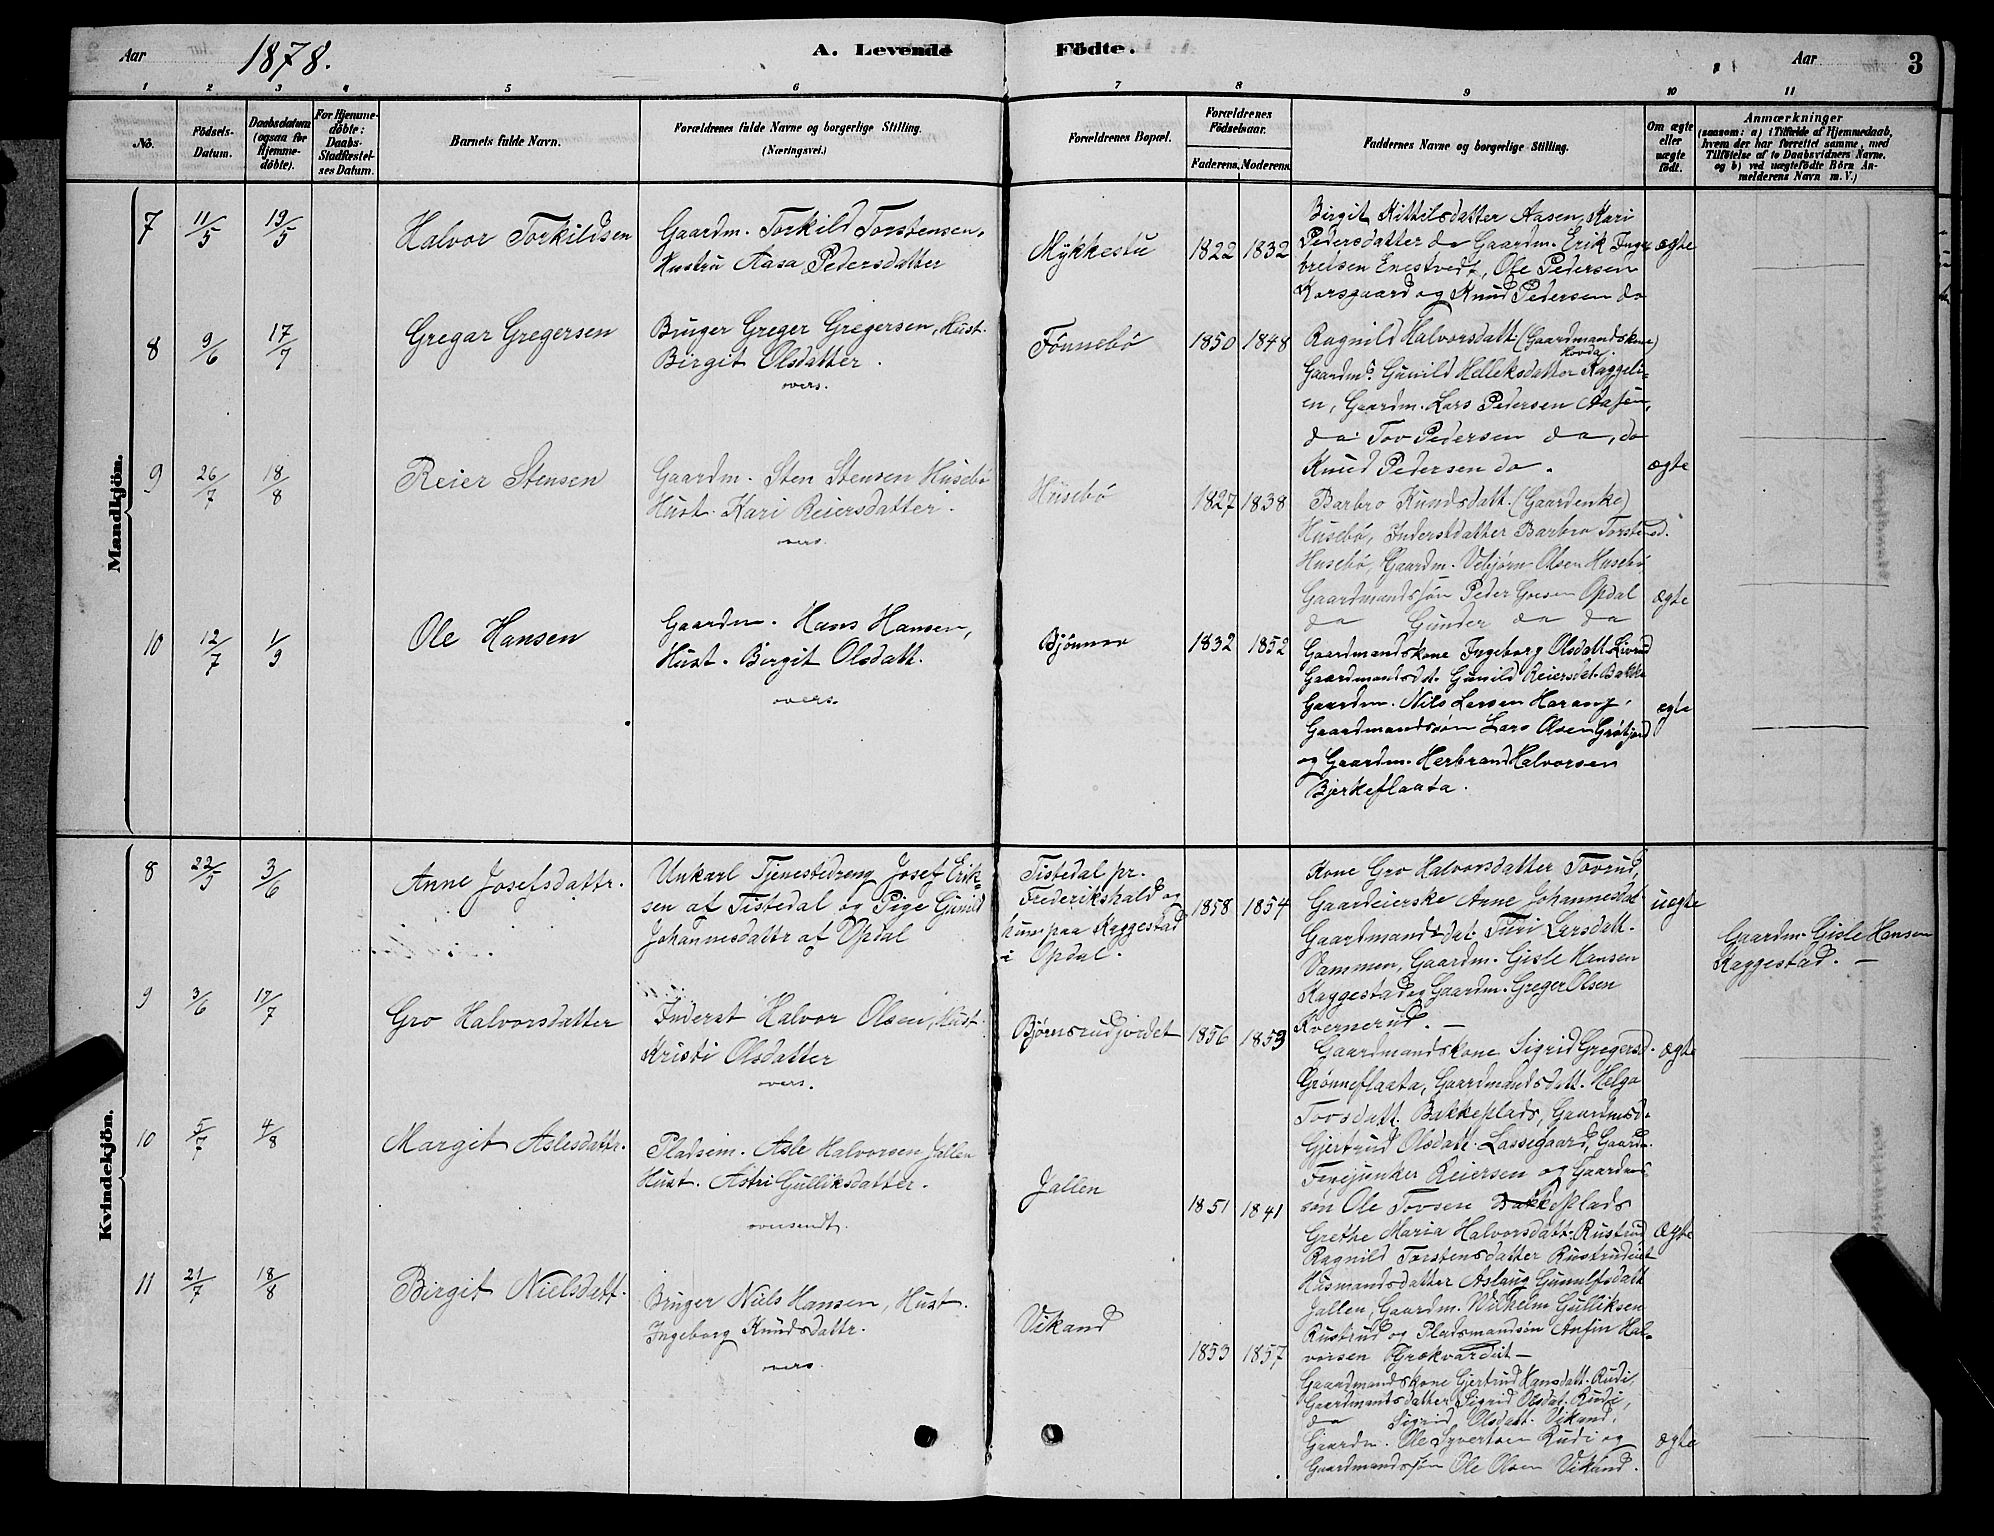 Aar 1878. A. Levende Födte. Aar 3
1 2 3 4 5 6 7 8 9 10 11
No.
Födsels-
Datum.
Daabsdatum
(ogsaa for
Hjemme-
döbte).
For Hjemme-
döbte:
Daabs-
Stadfæstel-
ses Datum.
Barnets fulde Navn.
Forældrenes fulde Navne og borgerlige Stilling.
(Næringsvei.)
Forældrenes Bopæl.
Forældrenes
Födselsaar.
Faderens. Moderens.
Faddernes Navne og borgerlige Stilling.
Om ægte
eller
uægte
födt.
Anmærkninger
(saasom: a) i Tilfælde af Hjemmedaab,
hvem der har forrettet samme, med
Tilföielse af to Daabsvidners Navne.
og b) ved uægtefödte Börn An-
melderens Navn m. V.)
Mandkjön.
7 11/5 19/5
Halvor Torkildsen
Gaardm. Torkild Torstensen,
Hustru Aasa Pedersdatter
Mykkestu
1822 1832
Birgit Kittilsdatter Aasen, Kari
Pedersdatter do Gaardm. Erik Inge
bretsen Enestvedt, Ole Pedersen
Korsgaard og Knud Pedersen do
ægte
8 9/6 17/7
Gregar Gregersen
Bruger Greger Gregersen, Hust.
Birgit Olsdatter.
overs.
Fönnebö
1850 1848
Ragnild Halvorsdatt. (Gaardmandskone)
Hovda.
Gaardmd. Gunild Helleksdatter Kaggeli-
en, Gaardm. Lars Pedersen Aasen,
do Tov Pedersen do, do
Knud Pedersen do.
ægte
9 26/7 18/8
Reier Stensen
Gaardm. Sten Stensen Husebö
Hust. Kari Reiersdatter.
overs.
Husebö
1827 1838
Barbro Knudsdatt. (Gaardenke)
Husebö, Inderstdatter Barbro Torstensd.
Husebö, Gaardm. Vebjörn Olsen Husebö
Gaardmandssön Peder Goesen Opdal
do Gunder do do
ægte
10 12/7 1/9
Ole Hansen
Gaardm. Hans Hansen,
Hust. Birgit Olsdatt.
overs.
Bjönnes
1832 1852
Gaardmandskone Ingeborg Olsdatt. Livrud
Gaardmandsdat. Gunild Reiersdat. Bakke
Gaardm. Nils Larsen Harang,
Gaardmandssön Lars Olsen Gröthjord
og Gaardm. Herbrand Halvorsen
Bjerkeflaata.
ægte
Kvindekjön.
8 22/5 3/6
Anne Josefsdattr.
Unkarl Tjenestedreng Josef Erik-
sen af Tistedal og Pige Gunild
Johannesdattr af Opdal
Tistedal pr.
Frederikshald og
hun paa Kaggestad
i Opdal.
1858 1854
Kone Gro Halvorsdatter Tovrud,
Gaardeierske Anne Johannesdat.
Gaardmandsdat. Turi Larsdatt.
Vammen, Gaardm. Gisle Hansen
Kaggestad og Gaardm. Greger Olsen
Kvernerud. —
uægte
Gaardm. Gisle Hansen
Kaggestad. —
9 3/6 17/7
Gro Halvorsdatter
Inderst Halvor Olsen, Hust.
Kristi Olsdatter
overs.
Björnsrudjordet
1856 1853
Gaardmandskone Sigrid Gregersd.
Grönneflaata, Gaardmandsdatt. Helga
Tovsdatt. Bakkeplads, Gaardmsd.
Gjertrud Olsdatt. Lassegaard, Gaardm.
Fenejunker Reiersen og Gaardms
sön Ole Tovsen Bakkeplads
ægte
10 5/7 4/8
Margit Aslesdattr.
Pladsem. Asle Halvorsen Jallen
Hust. Astri Gulliksdatter.
oversendt.
Jallen
1851 1841
Grethe Maria Halvorsdatt. Rustrud
Ragnild Torstensdatter Rustrudeiet
Husmandsdatter Aslaug Gunulfsdatt
Jallen, Gaardm. Wilhelm Gulliksen
Rustrud og Pladsmandsön Anfin Hal-
vorsen Grækvardeit —
ægte
11 21/7 18/8
Birgit Nielsdatt.
Bruger Niels Hansen, Hust.
Ingeborg Knudsdattr.
overs.
Vikand
1853 1857
Gaardmandskone Gjertrud Hansdatt. Rudi,
Gaardmandsdatter Sigrid Olsdat. Rudi,
do Sigrid Olsdatt. Vikand,
Gaardm. Ole Syvertsen Rudi og
Gaardmandssön Ole Olsen Vikand.
ægte